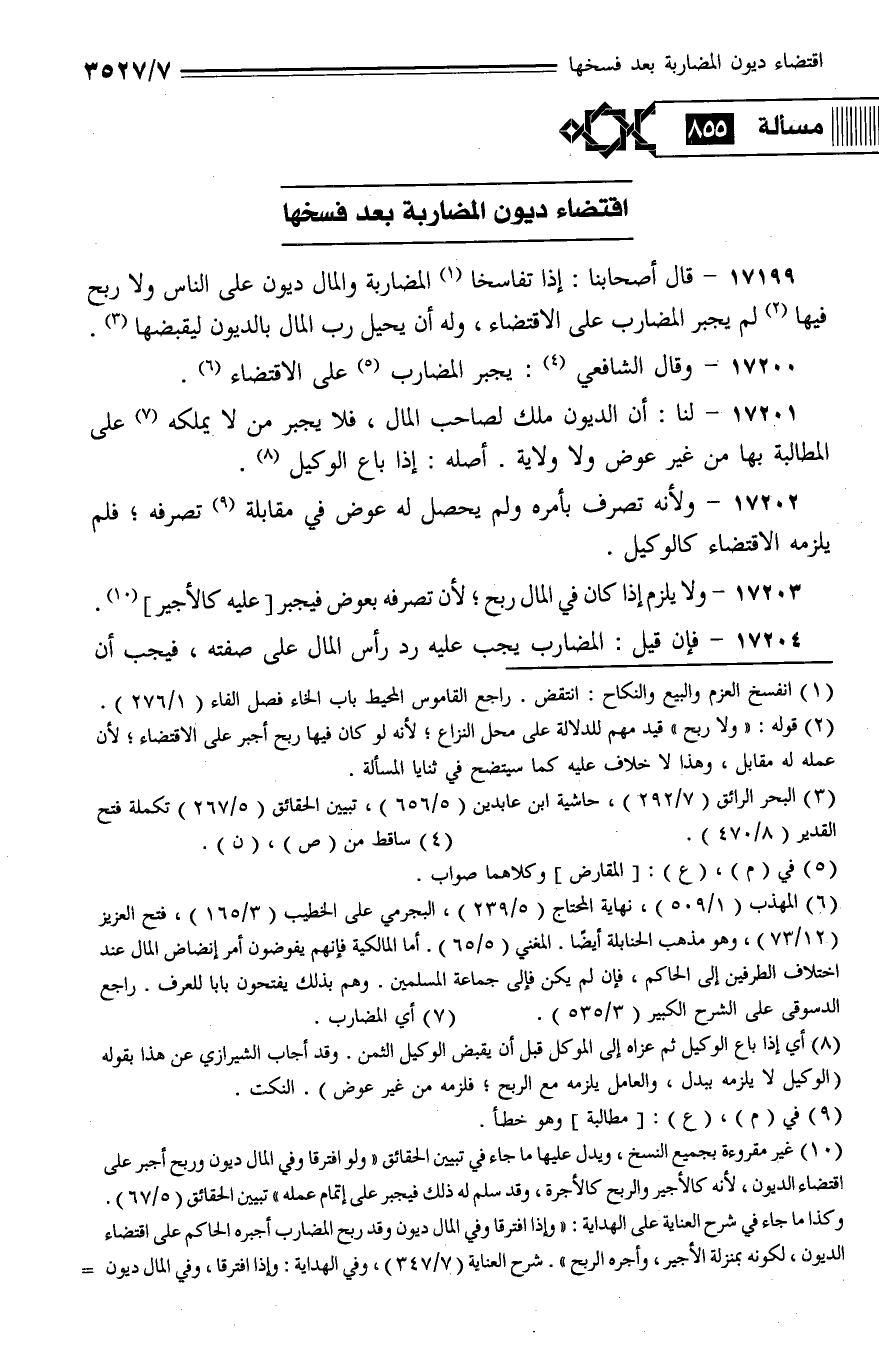 اقتضاء ديون المضاربة بعد فسخها ٣٥٢٧/٧
مسألة ٨٥٥
اقتضاء ديون المضاربة بعد فسخها
١٧١٩٩ - قال أصحابنا : إذا تفاسخا (١) المضاربة والمال ديون على الناس ولا ربح
فيها (٢) لم يجبر المضارب على الاقتضاء ، وله أن يحيل رب المال بالديون ليقبضها (٣) .
١٧٢٠٠ - وقال الشافعي (٤) : يجبر المضارب (٥) على الاقتضاء (٦) .
١٧٢٠١ - لنا : أن الديون ملك لصاحب المال ، فلا يجبر من لا يملكه (٧) على
المطالبة بها من غير عوض ولا ولاية . أصله : إذا باع الوكيل (٨) .
١٧٢٠٢ - ولأنه تصرف بأمره ولم يحصل له عوض في مقابلة (٩) تصرفه ؛ فلم
يلزمه الاقتضاء كالوكيل .
١٧٢٠٣ - ولا يلزم إذا كان في المال ربح ؛ لأن تصرفه بعوض فيجبر [ عليه كالأجير ] (١٠) .
١٧٢٠٤ - فإن قيل : المضارب يجب عليه رد رأس المال على صفته ، فيجب أن
(١) انفسخ العزم والبيع والنكاح : انتقض . راجع القاموس المحيط باب الخاء فصل الفاء ( ٢٧٦/١ ) .
(٢) قوله : « ولا ربح » قيد مهم للدلالة على محل النزاع ؛ لأنه لو كان فيها ربح أجبر على الاقتضاء ؛ لأن
عمله له مقابل ، وهذا لا خلاف عليه كما سيتضح في ثنايا المسألة .
(٣) البحر الرائق ( ٢٩٢/٧ ) ، حاشية ابن عابدين ( ٦٥٦/٥ ) ، تبيين الحقائق ( ٢٦٧/٥ ) تكملة فتح
القدير ( ٤٧٠/٨ ) . (٤) ساقط من ( ص ) ، ( ن ) .
(٥) في ( م ) ، ( ع ) : [ المقارض ] وكلاهما صواب .
(٦) المهذب ( ٥٠٩/١ ) ، نهاية المحتاج ( ٢٣٩/٥ ) ، البجرمي على الخطيب ( ١٦٥/٣ ) ، فتح العزيز
( ٧٣/١٢ ) ، وهو مذهب الحنابلة أيضًا . المغني ( ٦٥/٥ ) . أما المالكية فإنهم يفوضون أمر إنضاض المال عند
اختلاف الطرفين إلى الحاكم ، فإن لم يكن فإلى جماعة المسلمين . وهم بذلك يفتحون بابا للعرف . راجع
الدسوقى على الشرح الكبير ( ٥٣٥/٣ ) . (٧) أي المضارب .
(٨) أي إذا باع الوكيل ثم عزاه إلى الموكل قبل أن يقبض الوكيل الثمن . وقد أجاب الشيرازي عن هذا بقوله
(الوكيل لا يلزمه ببدل ، والعامل يلزمه مع الربح ؛ فلزمه من غير عوض ) . النكت .
(٩) في ( م ) ، ( ع ) : [ مطالبة ] وهو خطأ .
(١٠) غير مقروءة بجميع النسخ ، ويدل عليها ما جاء في تبيين الحقائق « ولو افترقا وفي المال ديون وربح أجبر على
اقتضاء الديون ، لأنه كالأجير والربح كالأجرة ، وقد سلم له ذلك فيجبر على إتمام عمله » تبيين الحقائق ( ٦٧/٥ ) .
وكذا ما جاء في شرح العناية على الهداية : « وإذا افترقا وفي المال ديون وقد ربح المضارب أجبره الحاكم على اقتضاء
الديون ، لكونه بمنزلة الأجير ، وأجره الربح » . شرح العناية ( ٣٤٧/٧ ) ، وفي الهداية : وإذا افترقا ، وفي المال ديون =